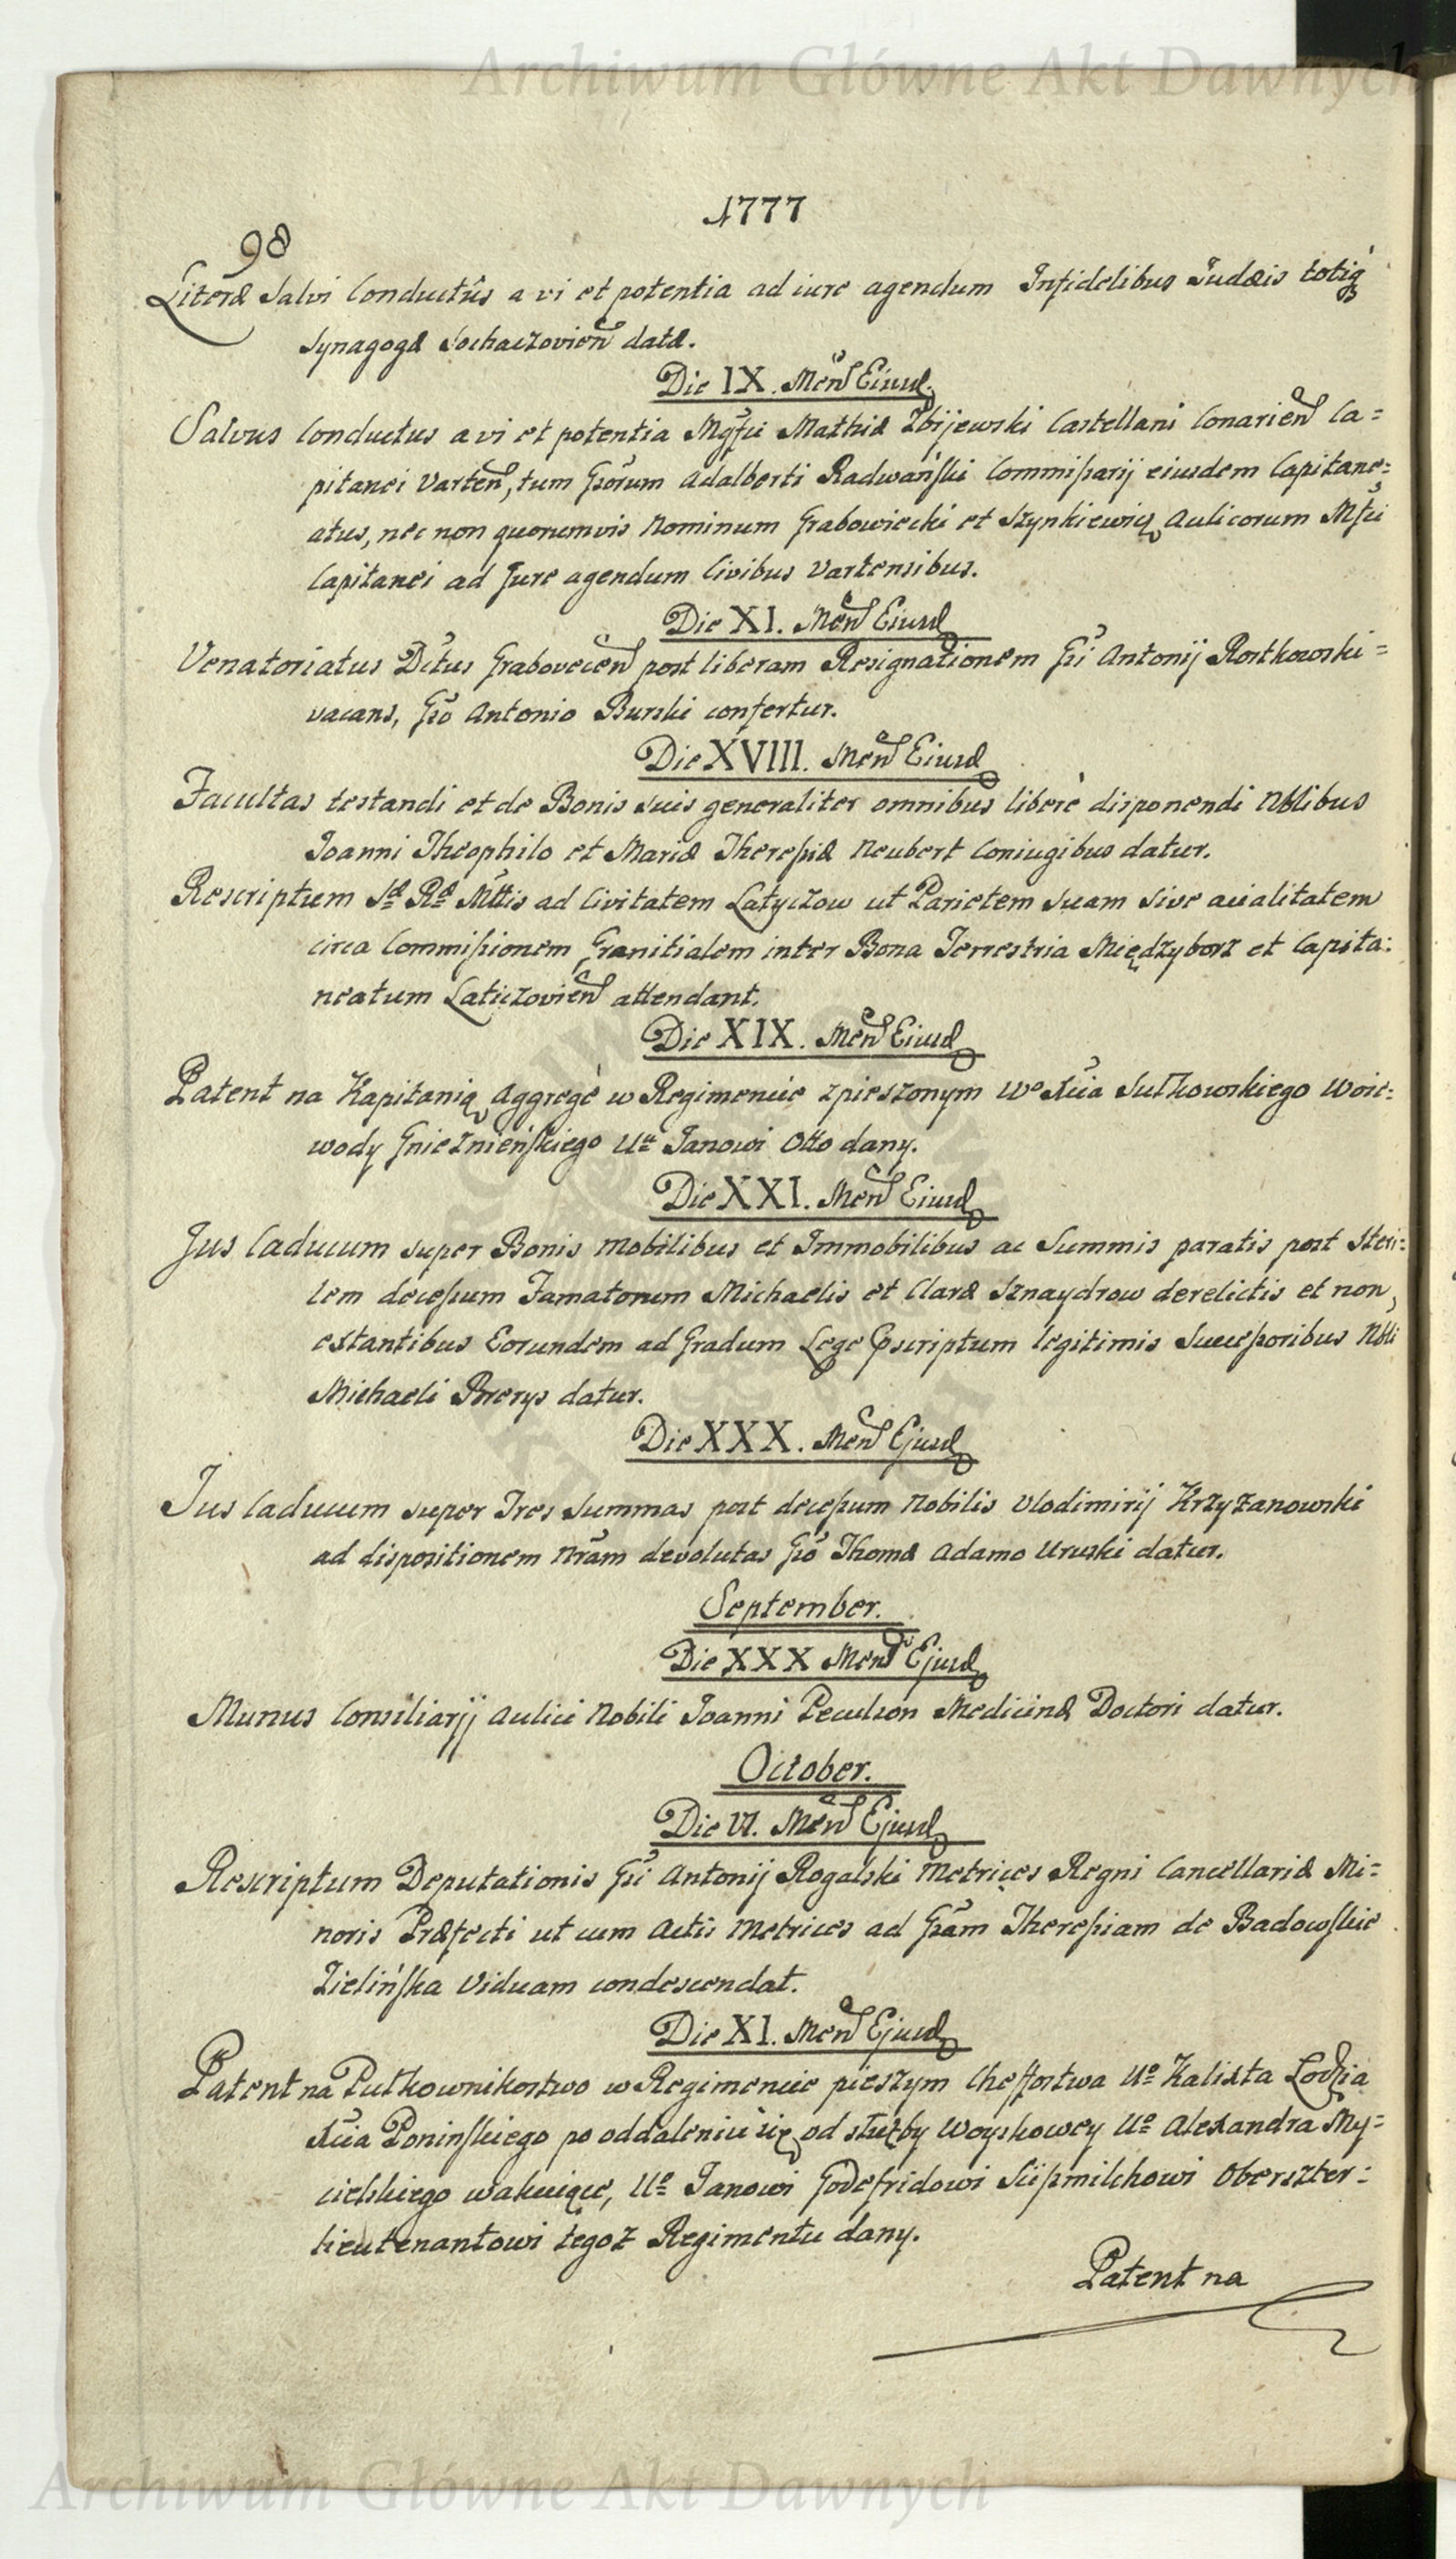 Archiwum Główne Akt Dawnych
1777
98
Literæ Salvi Conductûs a vi et potentia ad iure agendum Infidelibus Judæis totiq
Synagogæ Sochaczovien datæ.
Die IX. Men Eiusd.
Salvus Conductus a vi et potentia Mgfci Mathiæ Zbijewski Castellani Conarien Ca=
pitanei Varten, tum Gsorum Adalberti Radwański Commissarij eiusdem Capitane=
atus, nec non quorumvis Nominum Grabowiecki et Szynkiewicz Aulicorum Mfci
Capitanei ad Jure agendum Civibus Vartensibus.
Die XI. Men Eiusd
Venatoriatus Dctus Grabovecen post liberam Resignationem Gsi Antonij Rostkowski =
vacans, Gso Antonio Burski confertur.
Die XVIII. Men Eiusd
Facultas testandi et de Bonis suis generaliter omnibus liberè disponendi Nblibus
Joanni Theophilo et Mariæ Theresiæ Neubert Coniugibus datur.
Rescriptum Sæ Ræ Mttis ad Civitatem Latyczow ut Parietem suam sive
circa Commissionem Granitialem inter Bona Terrestria Międzyborz et Capita:
neatum Laticzovien attendant.
Die XIX. Men Eiusd
Patent na Kapitanią Aggregè w Regimencie spieszonym Wo Xcia Sułkowskiego Woie:
wody Gnieznieńskiego Ur Janowi Otto dany.
Die XXI. Men Eiusd
Jus Caducum super Bonis Mobilibus et Immobilibus ac Summis paratis post Steri:
lem decessum Famatorum Michaelis et Claræ Sznaydrow derelictis et non,
extantibus Eorundem ad Gradum Lege pscriptum legitimis Successoribus Nbli
Michaeli datur.
Die XXX. Men Ejusd
Jus Caducum super Tres Summas post decessum Nobilis Vlodimirij Krzyzanowski
ad dispositionem Nram devolutas Gso Thomæ Adamo Uruski datur.
September.
Die XXX Men Ejusd
Munus Consiliarij Aulici Nobili Joanni Peculson Medicinæ Doctori datur.
October.
Die VI. Men Ejusd
Rescriptum Deputationis Gsi Antonij Rogalski Metrices Regni Cancellariæ Mi=
noris Præfecti ut cum Actis Metrices ad Gsam Theresiam de Badowskie
Zielińska Viduam condescendat.
Die XI. Men Ejusd
Patent na Pułkownikostwo w Regimencie pieszym Cheffostwa Uo Kalixta Lodzia
Xcia Poninskiego po oddaleniu się od służby Woyskowey Uo Alexandra My=
cielskiego wakuiące, Uo Janowi Godefridowi Süssmilchowi Oberszter=
lieutenantowi tegoż Regimentu dany.
Patent na
Archiwum Główne Akt Dawnych